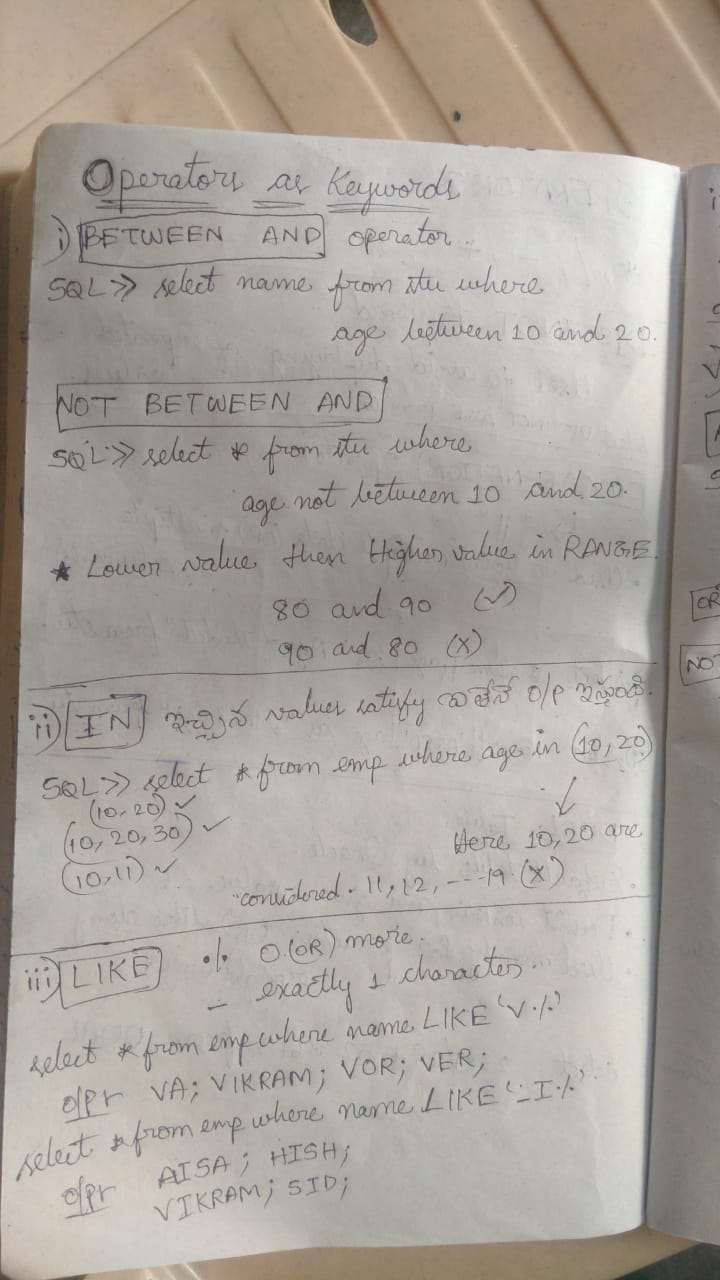 Operators as Keywords
i) BETWEEN AND operator.
SQL>> select name from stu where
age between 10 and 20.
NOT BETWEEN AND
SQL>> select * from stu where
age not between 10 and 20.
* Lower value then Higher value in RANGE.
80 and 90 (✓)
90 and 80 (x)
ii) IN ఇచ్చిన values satisfy అయితేనే o/p ఇస్తుంది.
SQL>> select * from emp where age in (10,20)
(10,20) ✓
(10,20,30) ✓
(10,11) ✓
↓
Here 10,20 are
considered. 11,12,---19 (x)
iii) LIKE % 0 (OR) more.
_ exactly 1 character.
select * from emp where name LIKE 'V%'
o/pr VA; VIKRAM; VOR; VER;
select * from emp where name LIKE '_I%'.
o/pr AISA; HISH;
VIKRAM; SID;
i
OR
NOT